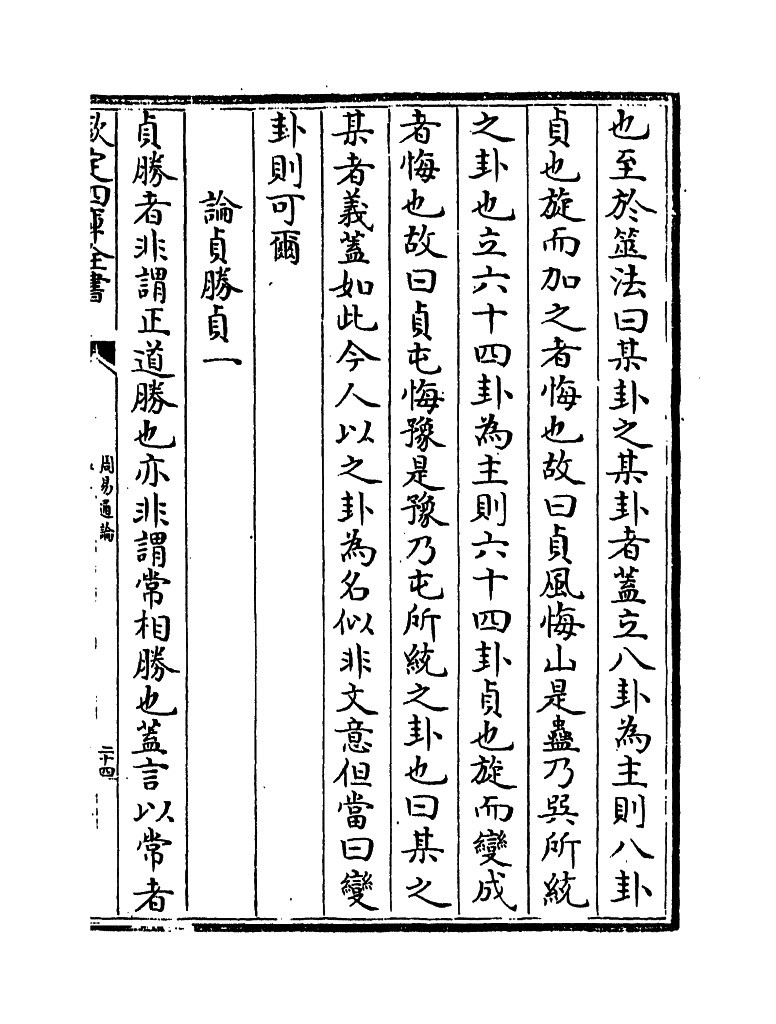 也至於筮法曰某卦之某卦者蓋立八卦為主則八卦
貞也旋而加之者悔也故曰貞風悔山是蠱乃巽所統
之卦也立六十四卦為主則六十四卦貞也旋而變成
者悔也故曰貞屯悔豫是豫乃屯所統之卦也曰某之
某者義蓋如此今人以之卦為名似非文意但當曰變
卦則可爾
論貞勝貞一
貞勝者非謂正道勝也亦非謂常相勝也蓋言以常者
欽定四庫全書
周易通論
二十四